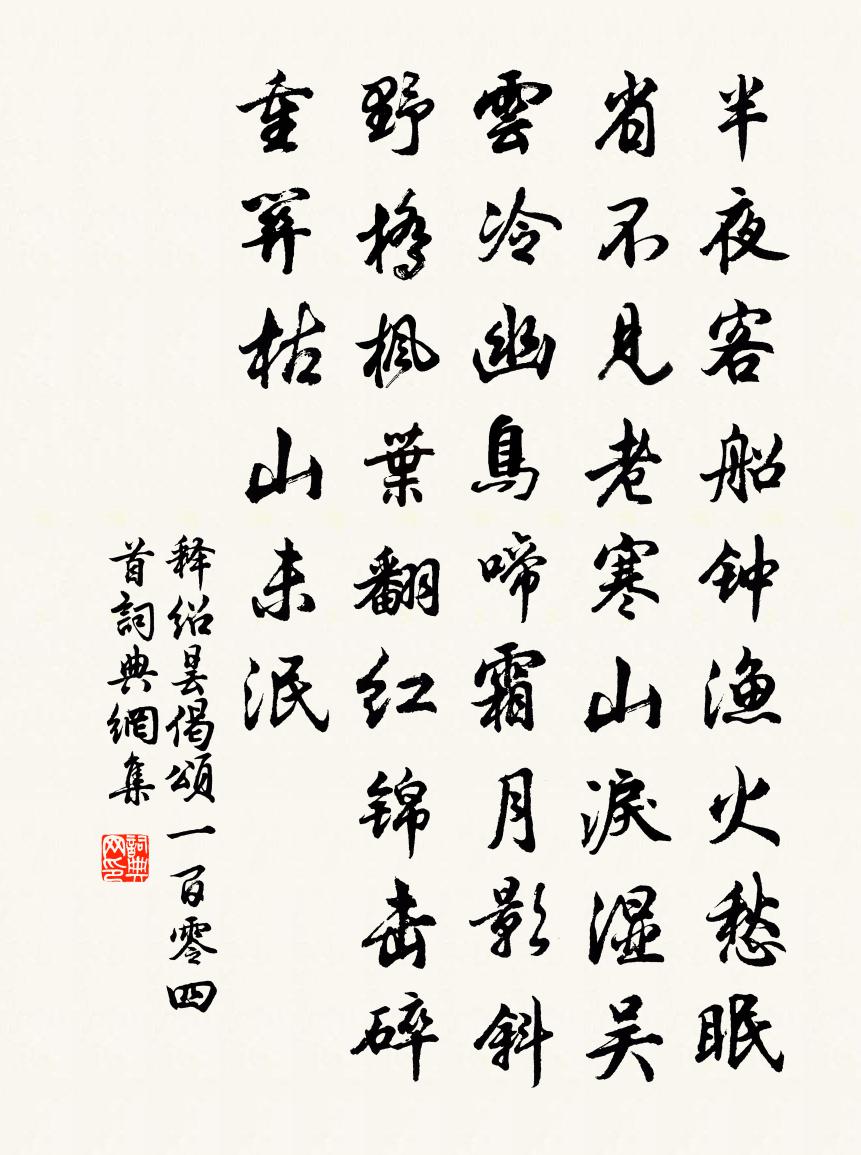 半夜客船钟渔火愁眠
省不见老寒山淚湿吴
雲冷幽鳥啼霜月影斜
野橋枫葉翻红锦击碎
重算枯山未泯
释绍昙偈頌一百零四
首詞典網集
詞典网印